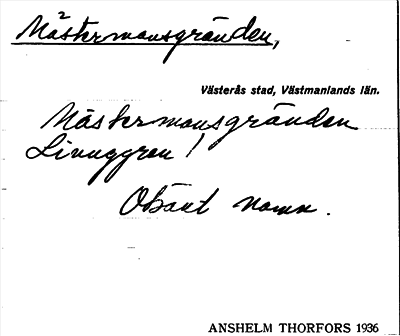 Mästermansgränden,
Västerås stad, Västmanlands län.
Mästermansgränden
Linnggren!
Okänt namn.
ANSHELM THORFORS 1936